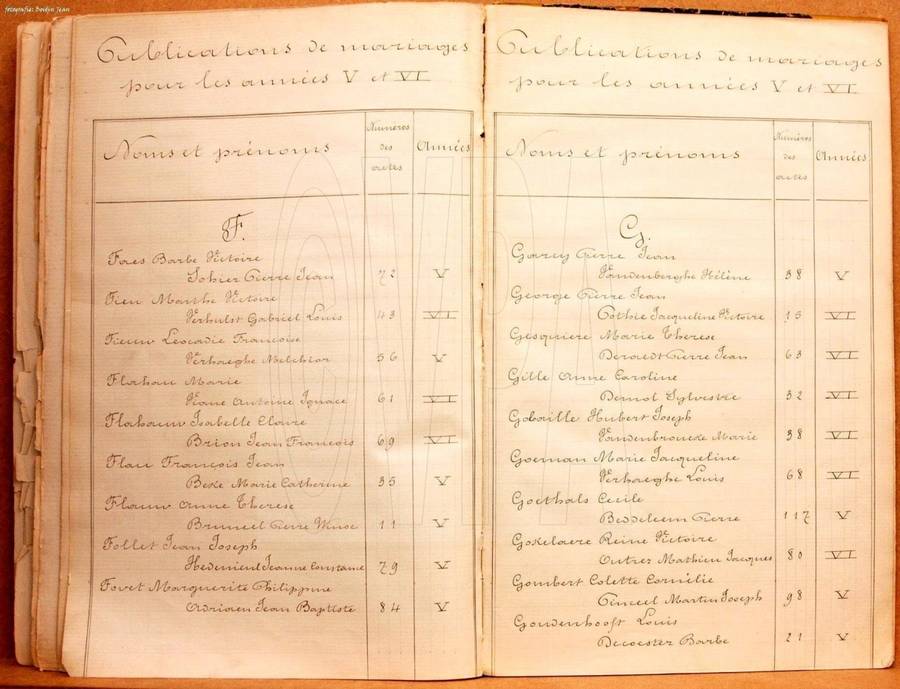 fotografie: Boidyn Jean
Publications de mariages
pour les années V et VI
Noms et prénoms
Numéros des actes
Années
F.
Faes Barbe Victoire
Johier Pierre Jean 72 V
Fieu Marthe Victoire
Verhulst Gabriel Louis 43 VI
Fieuw Leocadie Françoise
Verhaeghe Melchior 56 V
Flahau Marie
Viane Antoine Ignace 61 VI
Flahauw Isabelle Claire
Brion Jean François 69 VI
Flau François Jean
Beke Marie Catherine 35 V
Flauw Anne Therese
Bruneel Pierre 11 V
Follet Jean Joseph
Jeanne Constance 79 V
Fovet Marguerite Philippine
Adriaen Jean Baptiste 84 V
Publications de mariages
pour les années V et VI
Noms et prénoms
Numéros des actes
Années
G.
Garey Pierre Jean
Vandenberghe Hélène 38 V
George Pierre Jean
Cothie Jacqueline Victoire 15 VI
Gesquiere Marie Therese
Deraedt Pierre Jean 63 VI
Gille Anne Caroline
Demol Sylvestre 32 VI
Gobaille Hubert Joseph
Vandenbroucke Marie 38 VI
Goeman Marie Jacqueline
Verhaeghe Louis 68 VI
Goethals Cecile
Beddeleem Pierre 117 V
Gokelaere Reine Victoire
Outrez Mathieu Jacques 80 VI
Gombert Colette Cornélie
Pineel Martin Joseph 98 V
Goudenhooft Louis
Decoester Barbe 21 V